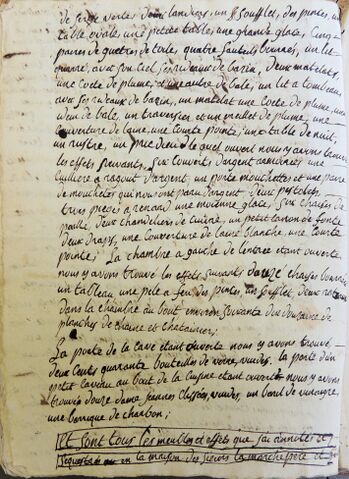 de serge verte, deux landiers, un soufflet, des pincettes, une
table ovale, une petite table, une grande glace, cinq
paires de guetres de toile, quatre fauteuils brunes, un lit
avec son ciel ses rideaux de bazin, deux matelats,
une coete de plume, et une autre de bale, un lit a tombeau
avec ses rideaux de bazin, un matelat une coete de plume, une
de bale, un traversin et un oreiller de plume, une
couverture de laine, une courte pointe, une table de nuit,
un prie dieu le quel ouvert nous y avons trouvé
les effets suivants. six couverts d'argent armoiries une
cuilliere a ragout d'argent, un porte mouchettes et une paire
de mouchettes qui nous ont paru d'argent deux pistolets,
une moienne glace, six chaises de
paille, deux chandeliers de cuivre, un petit canon de fonte
deux draps, une couverture de laine blanche, une courte
pointe; La chambre a gauche de l'entree etant ouverte
nous y avons trouvé les effets suivants douze chaises
un tableau, une pele a feu des pinces, un soufflet, deux
dans la chambre au bout environ soixante dix douzaines de
planches de chaine et chataignier;
La porte de la cave etant ouverte nous y avons trouvé
deux cents quarante bouteilles de verre, vuides. la porte d'un
petit caveau au bout de la cuisine etant ouverte nous y avons
trouvé douze dame jeannes clissées, vuides, un baril de vinaigre,
une barique de charbon;
Et sont tous les meubles et effets que j'ai annotés et
en la maison des sieurs la marche pere et